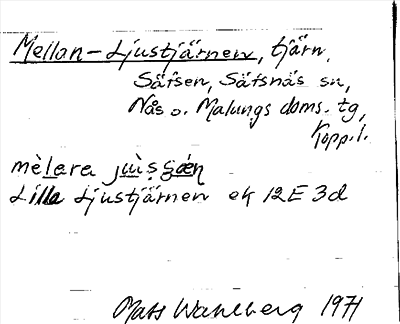 Mellan-Ljustjärnen, tjärn,
Säfsen, Säfsnäs sn,
Nås o. Malungs doms. tg,
Kopp.l.
mèlara
Lilla Ljustjärnen ek 12E 3d
Mats Wahlberg 1971